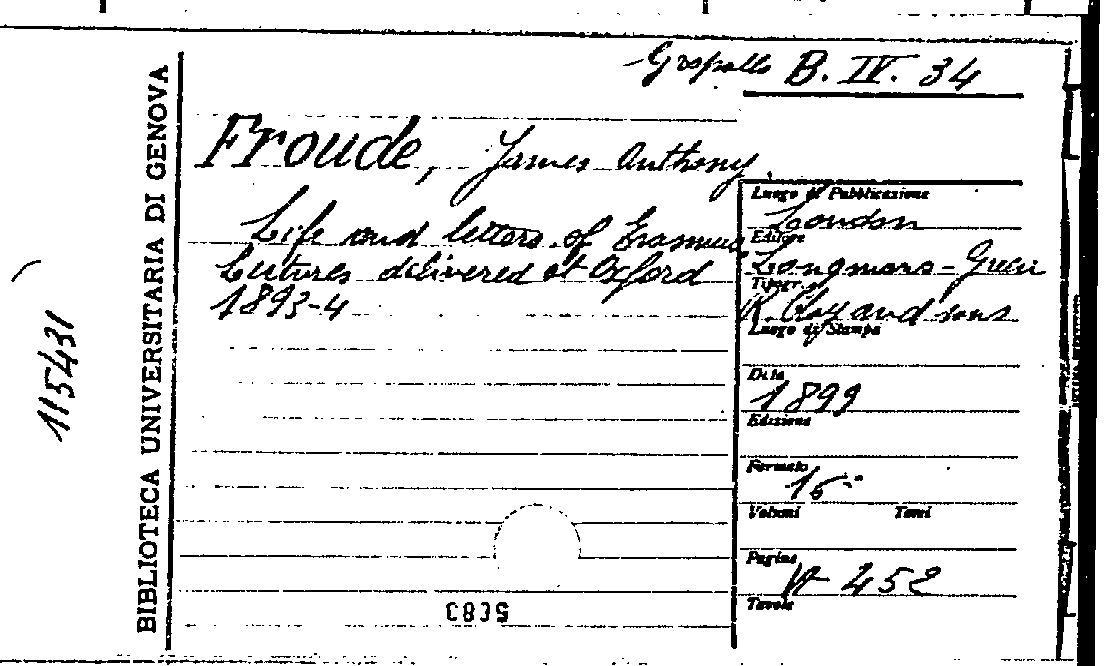 B. IV. 34
Froude, James Anthony
Life and letters of Erasmus
Lectures delivered at Oxford
1893-4
Luogo di Pubblicazione
London
Editore
Longmans-Green
Tipogr.
R. Clay and sons
Luogo di Stampa
Data
1899
Edizione
Formato
Volumi Tomi
Pagine
452
Tavole
BIBLIOTECA UNIVERSITARIA DI GENOVA
115431